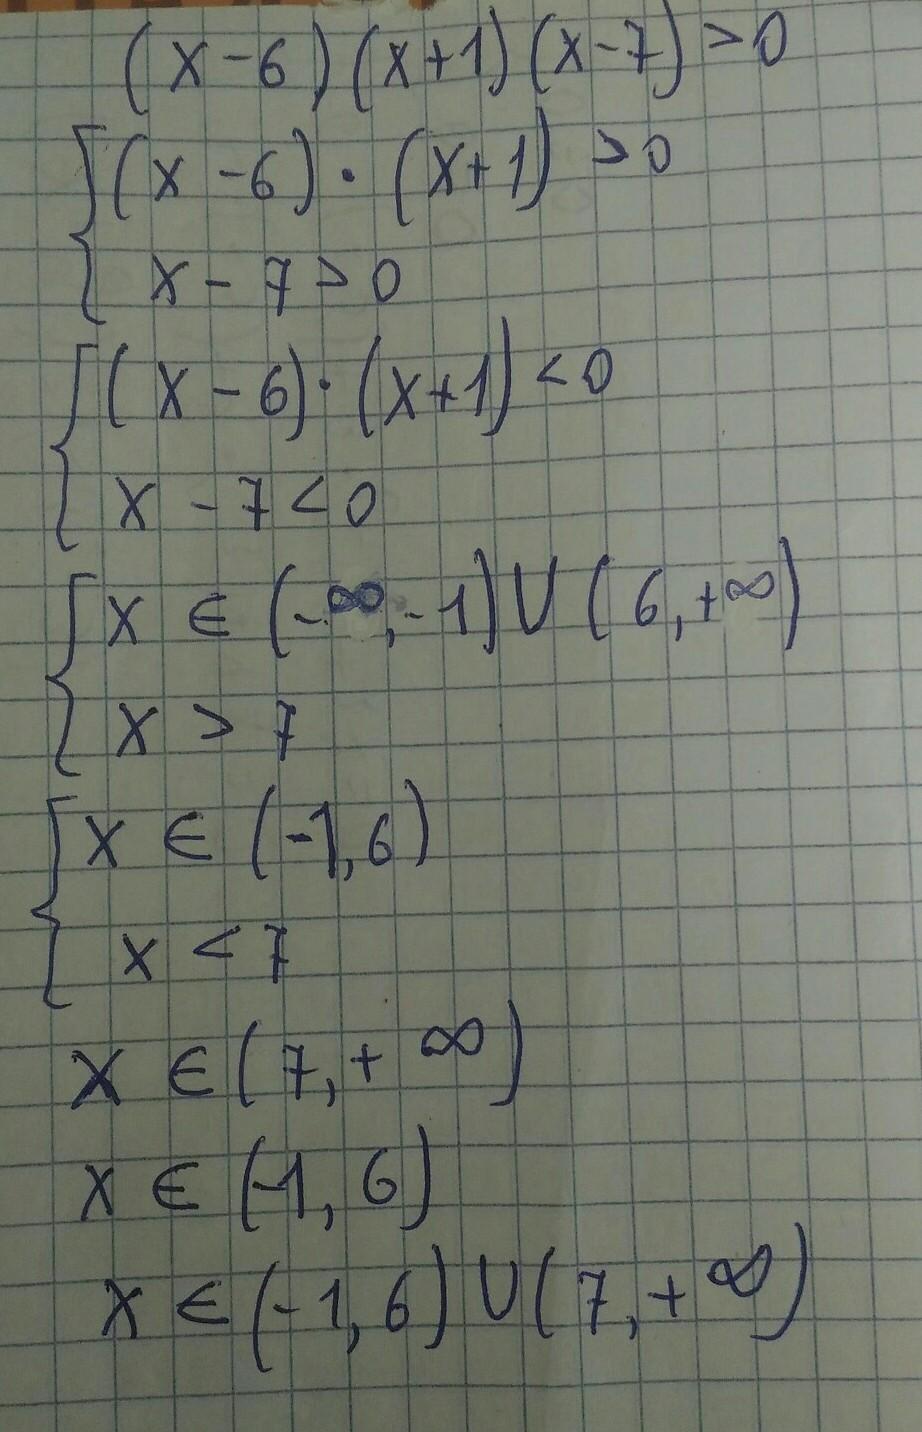 (x-6)(x+1)(x-7)>0
(x-6)·(x+1)>0
x-7>0
(x-6)·(x+1)<0
x-7<0
x∈(-∞,-1)∪(6,+∞)
x>7
x∈(-1,6)
x<7
x∈(7,+∞)
x∈(-1,6)
x∈(-1,6)∪(7,+∞)